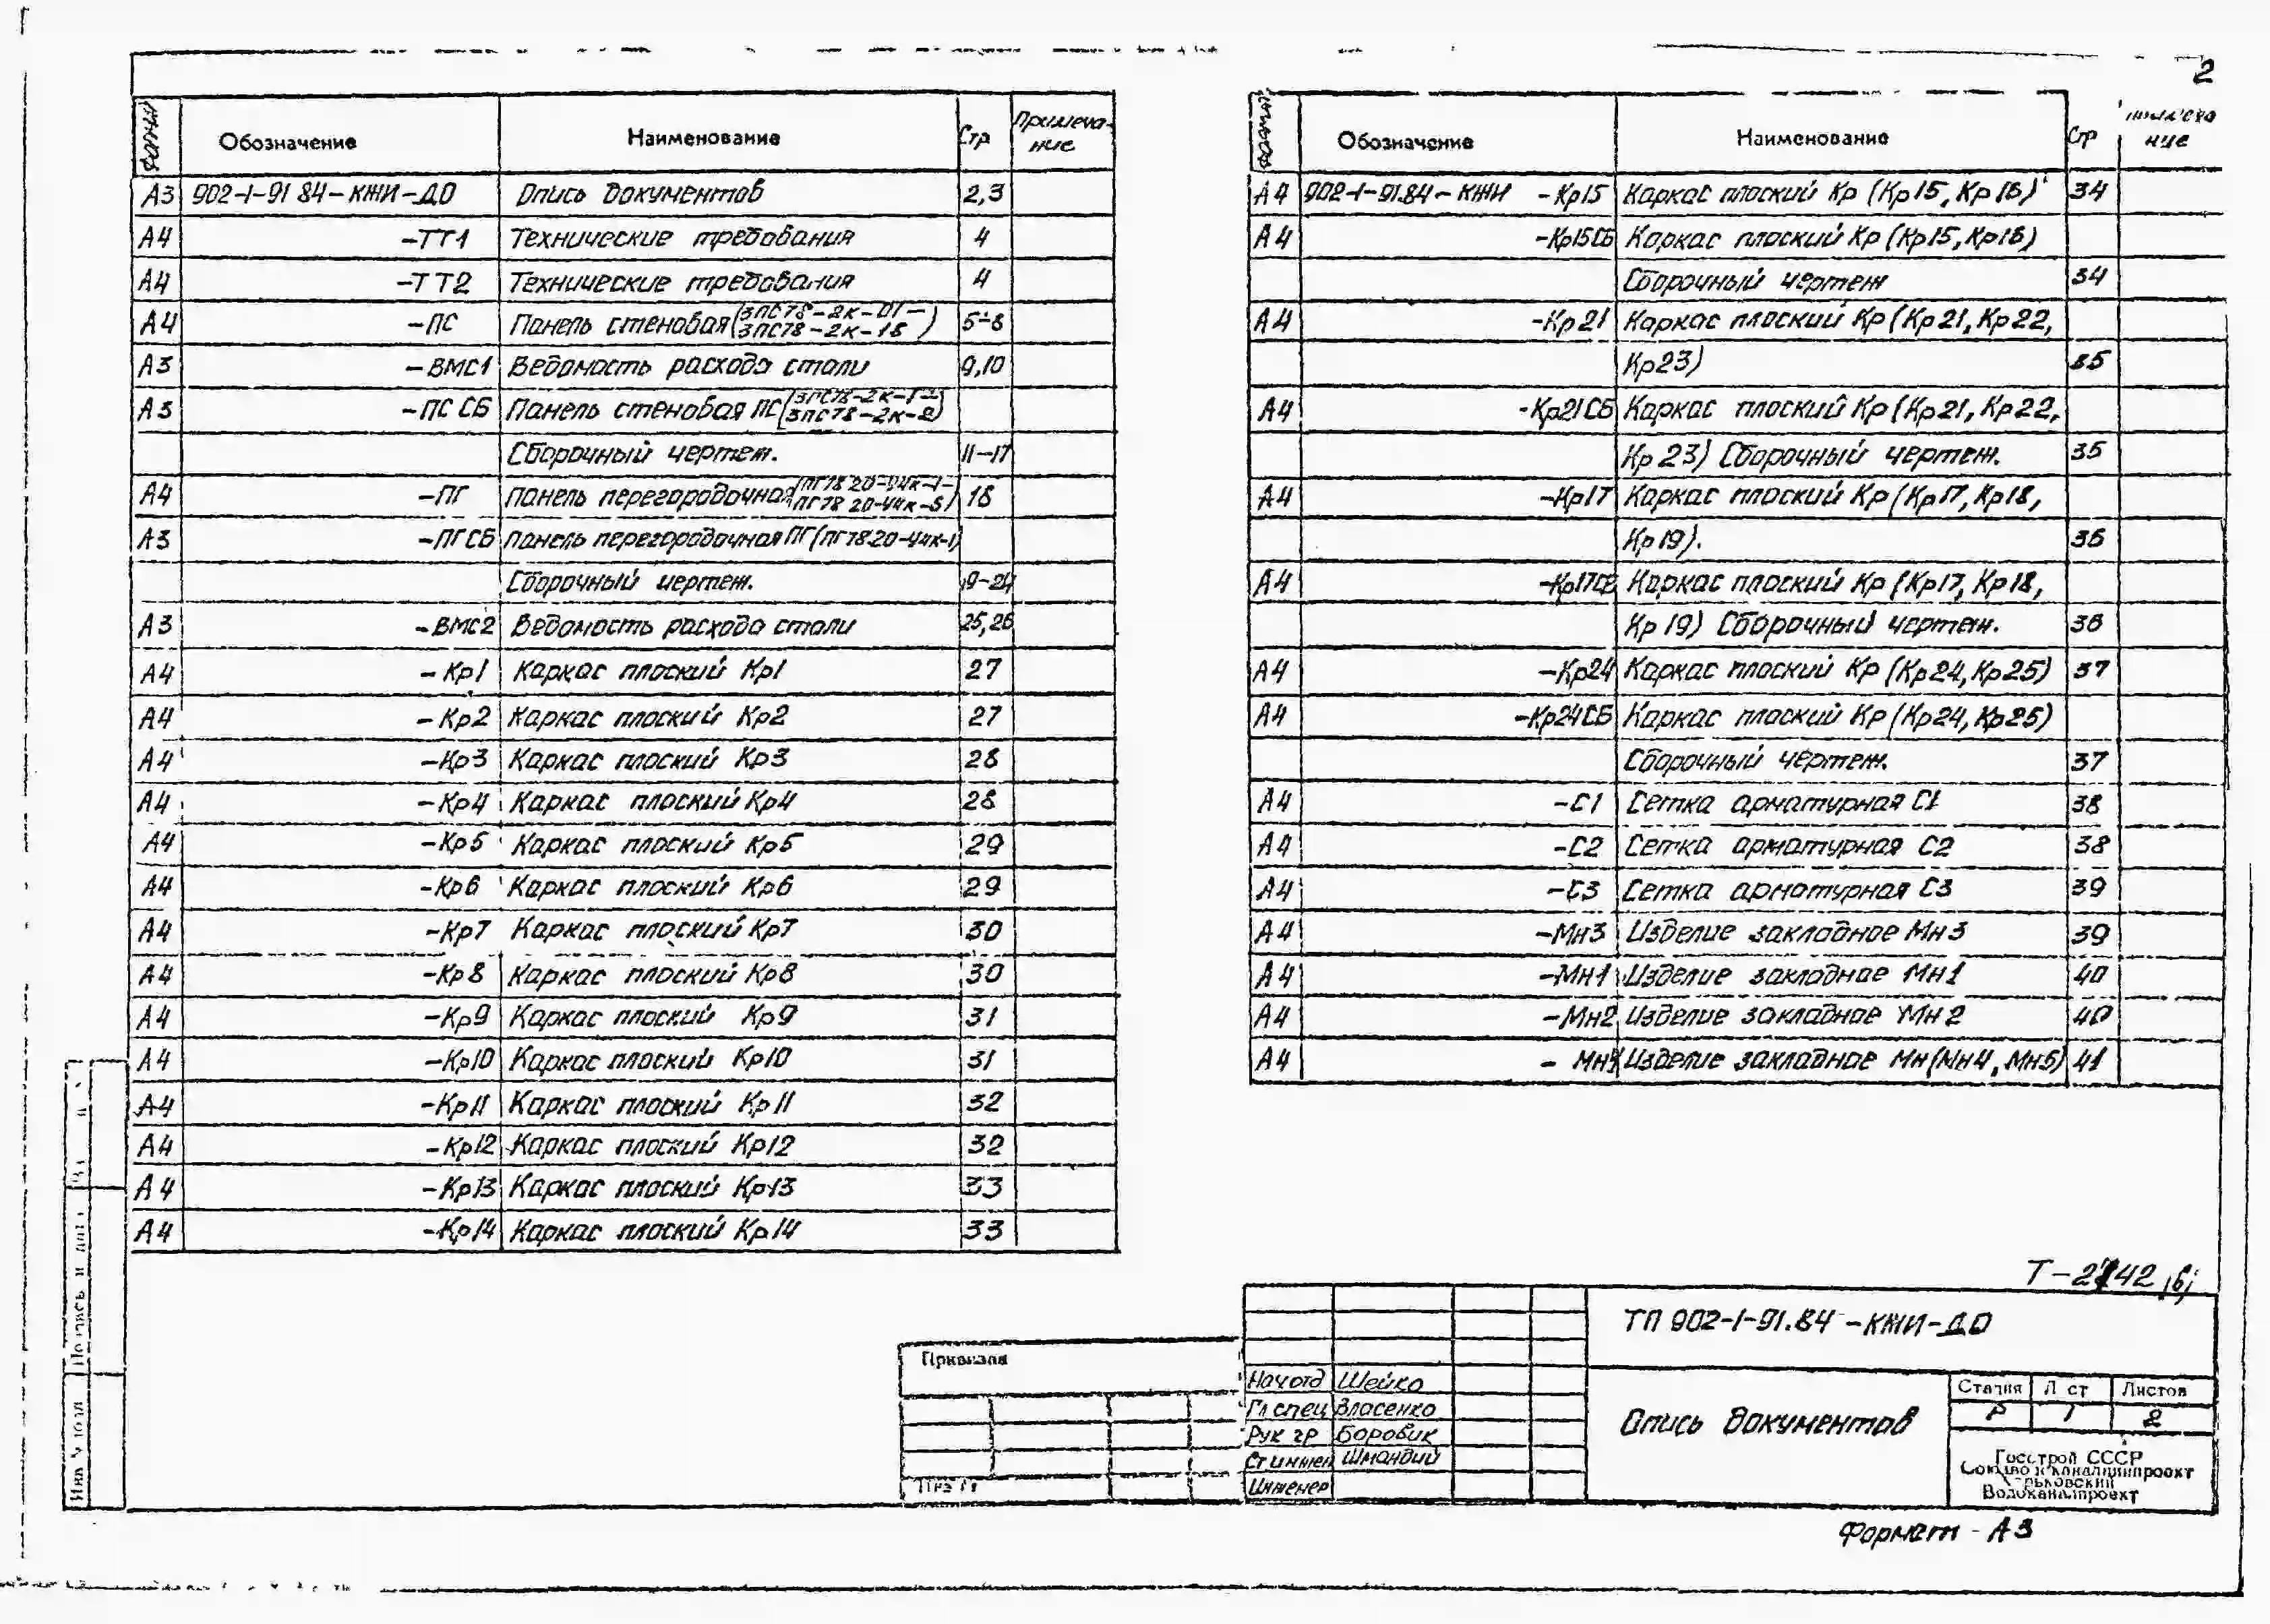 2
Формат Обозначение Наименование Стр Примеча-
ние
А3 902-1-91 84-КЖИ-ДО Опись документов 2,3
А4 -ТТ1 Технические требования 4
А4 -ТТ2 Технические требования 4
А4 -ПС Панель стеновая (3ПС78-2К-01- 5-8
3ПС78-2К-18)
А3 -ВМС1 Ведомость расхода стали 9,10
А3 -ПС СБ Панель стеновая ПС (3ПС78-2К-1-
3ПС78-2К-2)
Сборочный чертеж. 11-17
А4 -ПГ Панель перегородочная (ПГ78 20-44к-1- 18
ПГ78 20-44к-5)
А3 -ПГСБ Панель перегородочная ПГ (ПГ7820-44к-1)
Сборочный чертеж. 19-24
А3 -ВМС2 Ведомость расхода стали 25,26
А4 -Кр1 Каркас плоский Кр1 27
А4 -Кр2 Каркас плоский Кр2 27
А4 -Кр3 Каркас плоский Кр3 28
А4 -Кр4 Каркас плоский Кр4 28
А4 -Кр5 Каркас плоский Кр5 29
А4 -Кр6 Каркас плоский Кр6 29
А4 -Кр7 Каркас плоский Кр7 30
А4 -Кр8 Каркас плоский Кр8 30
А4 -Кр9 Каркас плоский Кр9 31
А4 -Кр10 Каркас плоский Кр10 31
А4 -Кр11 Каркас плоский Кр11 32
А4 -Кр12 Каркас плоский Кр12 32
А4 -Кр13 Каркас плоский Кр13 33
А4 -Кр14 Каркас плоский Кр14 33
Формат Обозначение Наименование Стр Примеча
ние
А4 902-1-91.84-КЖИ -Кр15 Каркас плоский Кр (Кр15, Кр16) 34
А4 -Кр15СБ Каркас плоский Кр (Кр15, Кр16)
Сборочный чертеж 34
А4 -Кр21 Каркас плоский Кр (Кр21, Кр22,
Кр23) 35
А4 -Кр21СБ Каркас плоский Кр (Кр21, Кр22,
Кр23) Сборочный чертеж. 35
А4 -Кр17 Каркас плоский Кр (Кр17, Кр18,
Кр19). 36
А4 -Кр17СБ Каркас плоский Кр (Кр17, Кр18,
Кр19) Сборочный чертеж. 36
А4 -Кр24 Каркас плоский Кр (Кр24, Кр25) 37
А4 -Кр24СБ Каркас плоский Кр (Кр24, Кр25)
Сборочный чертеж. 37
А4 -С1 Сетка арматурная С1 38
А4 -С2 Сетка арматурная С2 38
А4 -С3 Сетка арматурная С3 39
А4 -Мн3 Изделие закладное Мн3 39
А4 -Мн1 Изделие закладное Мн1 40
А4 -Мн2 Изделие закладное Мн2 40
А4 - Мн4 Изделие закладное Мн (Мн4, Мн5) 41
ТП 902-1-91.84-КЖИ-ДО
Привязал
Нач отд Шейко
Гл спец Власенко
Рук гр Боровик
Ст инжен Шмандий
Инженер
Опись документов
Стадия Лист Листов
Р 1 2
Госстрой СССР
Союзводоканалниипроект
Харьковский
Водоканалпроект
Формат - А3